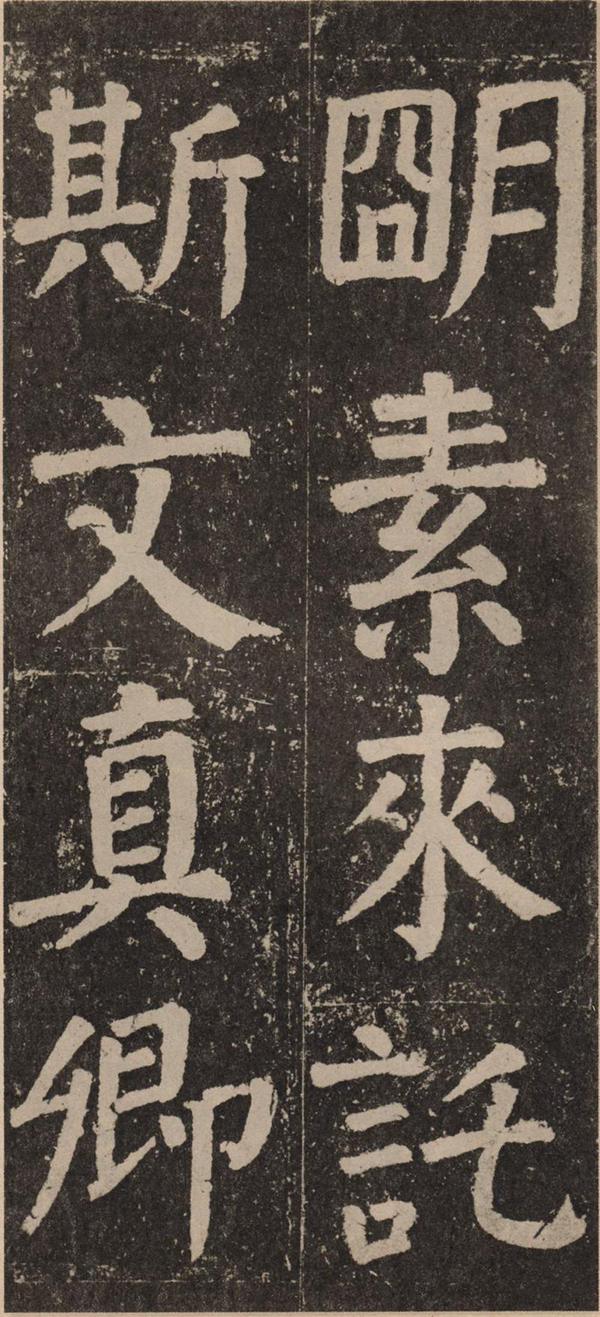 朙素來託
斯文真卿